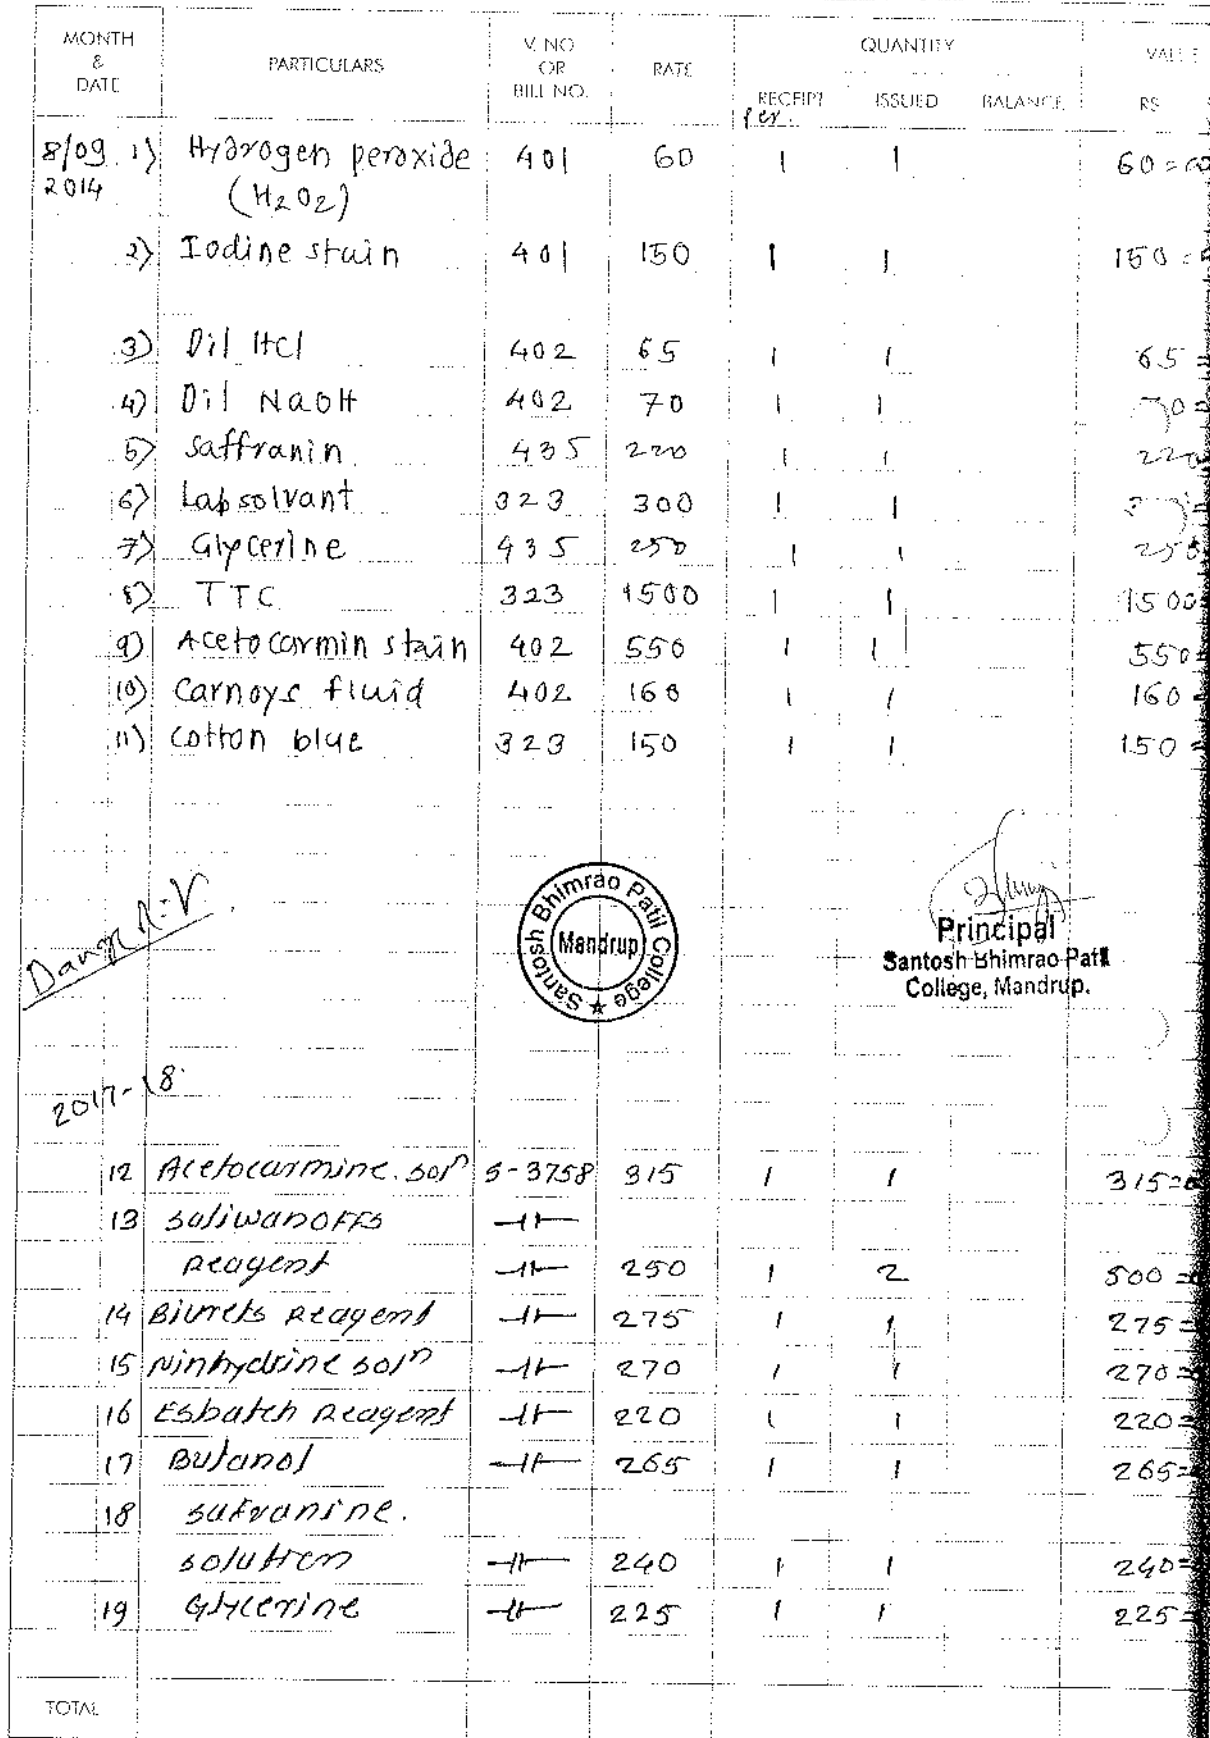 MONTH & DATE PARTICULARS V. NO OR BILL NO. RATE QUANTITY RECEIPT ISSUED BALANCE VALUE RS
Per.
8/09 2014 1) Hydrogen peroxide 401 60 1 1 60=00
(H2O2)
2) Iodine stain 401 150 1 1 150=
3) Dil Hcl 402 65 1 1 65=
4) Dil NaOH 402 70 1 1 70=
5) Saffranin 435 220 1 1 220
6) Labsolvant 323 300 1 1
7) Glycerine 435 250 1 1 250
8) TTC 323 1500 1 1 1500
9) Acetocarmin stain 402 550 1 1 550=
10) Carnoys fluid 402 160 1 1 160=
11) Cotton blue 323 150 1 1 150=
Santosh Bhimrao Patil College ★
Mandrup
Dange R.V.
Principal
Santosh Bhimrao Patil
College, Mandrup.
2017-18
12 Acetocarmine. soln S-3758 315 1 1 315=
13 Saliwanoffs -11-
Reagent -11- 250 1 2 500=
14 Biurets Reagent -11- 275 1 1 275=
15 Ninhydrine soln -11- 270 1 1 270=
16 Esbatch Reagent -11- 220 1 1 220=
17 Butanol -11- 265 1 1 265=
18 Safranine.
solution -11- 240 1 1 240=
19 Glycerine -11- 225 1 1 225=
TOTAL